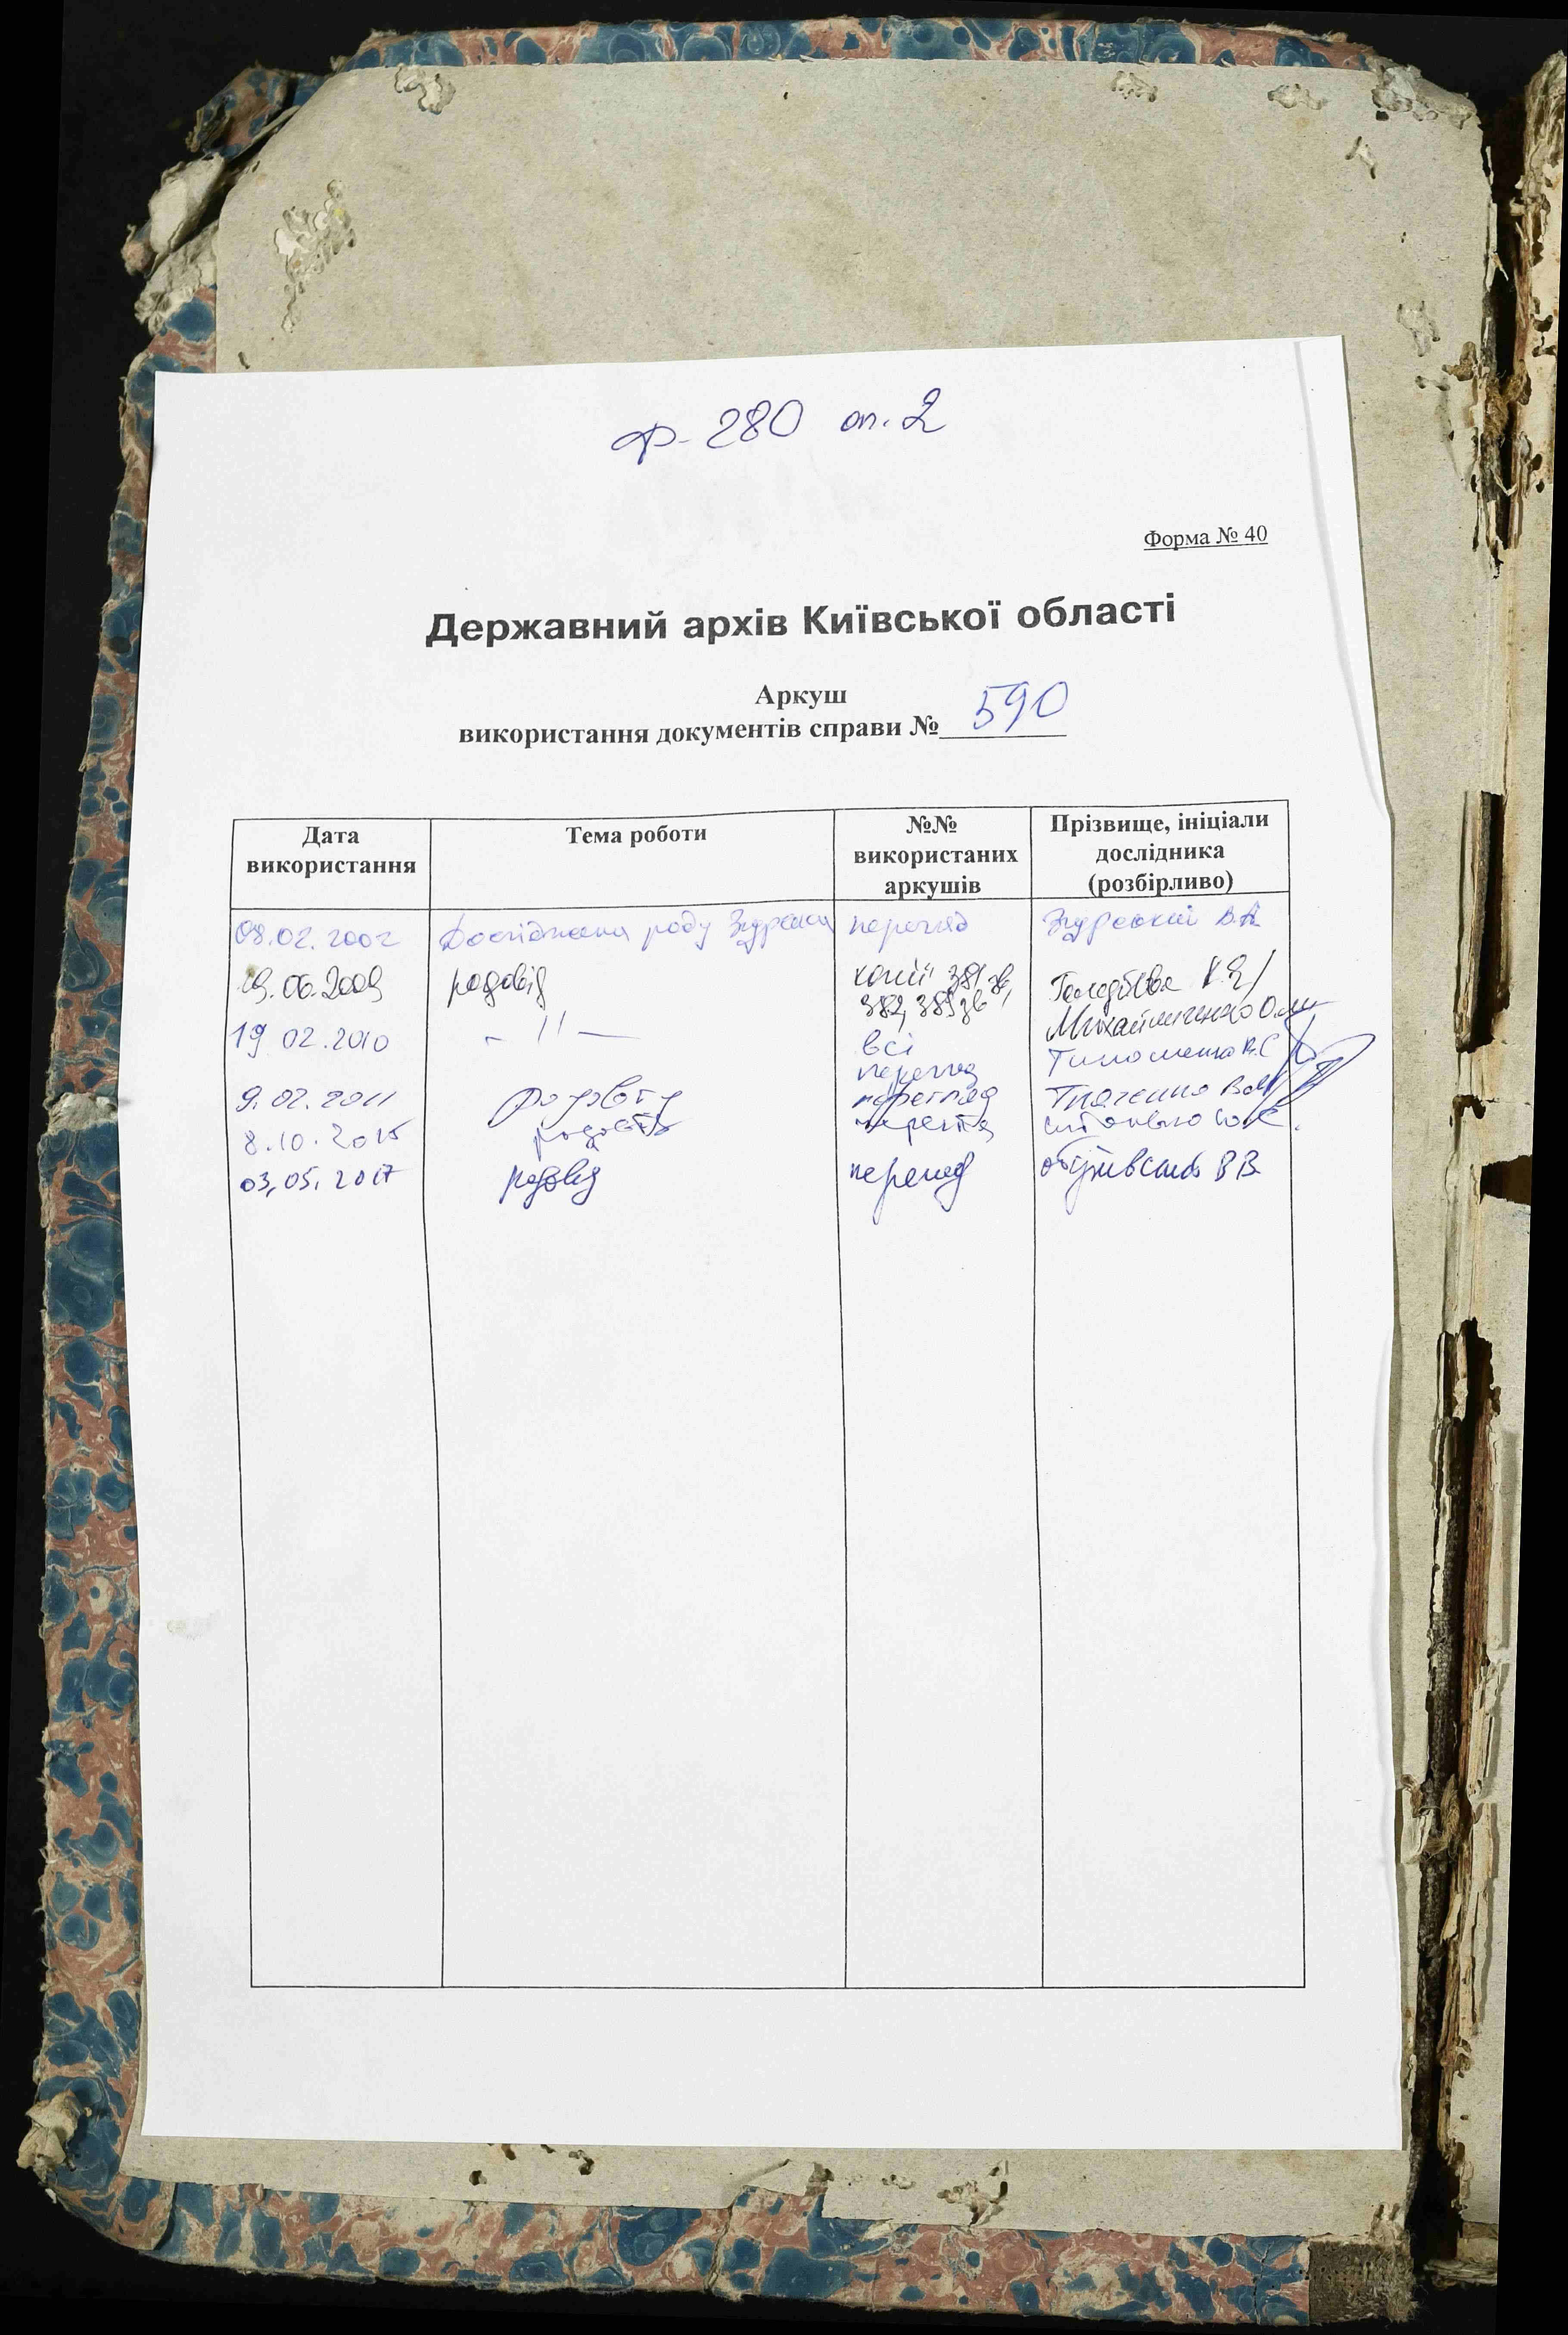 ф-280 оп.2
Форма № 40
Державний архів Київської області
Аркуш
використання документів справи № 590
Дата використання
Тема роботи
№№ використаних аркушів
Прізвище, ініціали дослідника (розбірливо)
08.02.2002 Дослідження роду перегляд В.А.
19.06.2009 родовід копії 381зв, 382, 385зв
19 02.2010 - // - всі Михайличенко О.
перегляд Тимошенко В.С
9.02.2011 родовід перегляд Ткаченко В.М
8.10.2015 родовід
03.05.2017 родовід перегляд В В